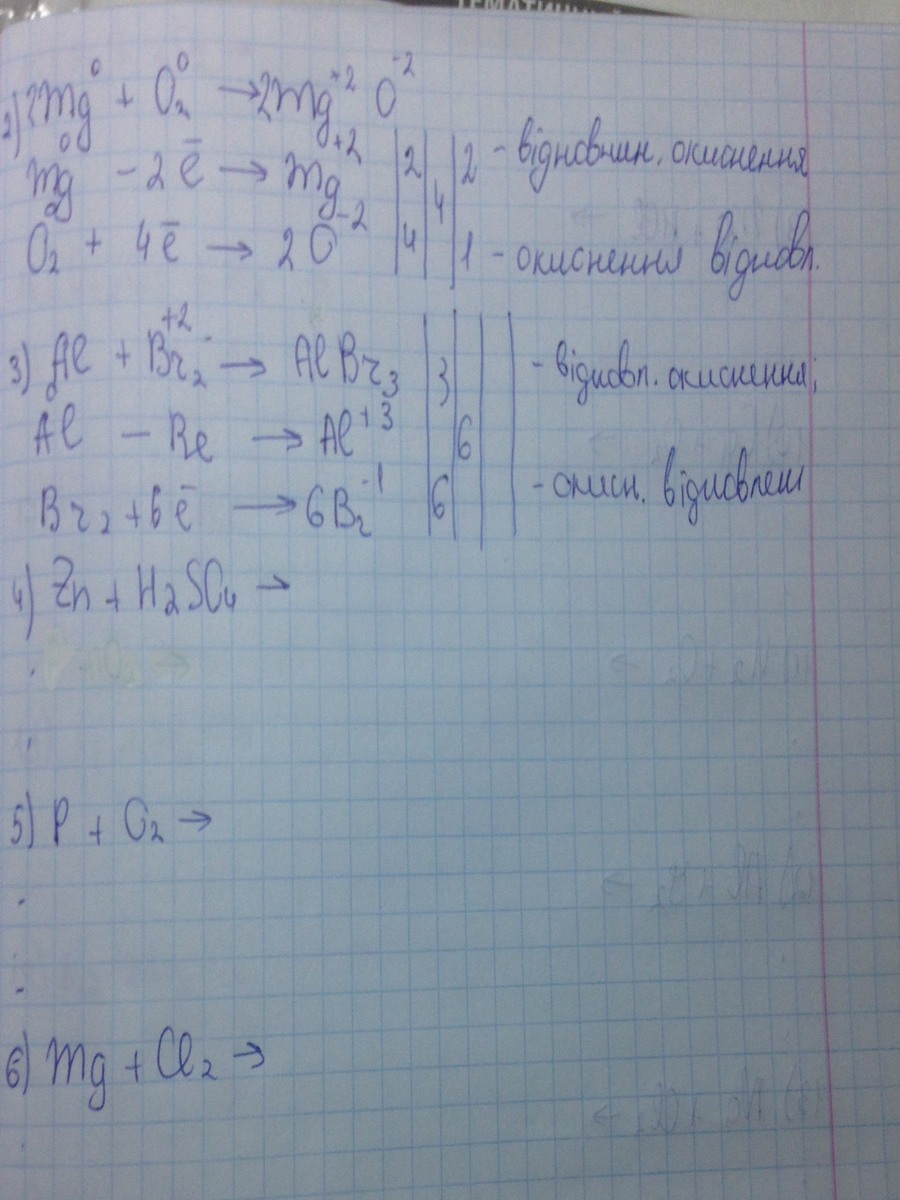 ТЕМАТИЧНИЙ
2) 2Mg⁰ + O₂⁰ → 2Mg⁺² O⁻²
Mg⁰ - 2ē → Mg⁺² | 2 | | 2 - відновник, окиснення
O₂⁰ + 4ē → 2O⁻² | 4 | 4 | 1 - окиснення відновл.
3) Al⁰ + Br₂⁺² → AlBr₃ | 3 - відновл. окиснення;
Al - Be → Al⁺³ | 6
Br₂ + 6ē → 6Br⁻¹ | 6 - окисн. відновлення
4) Zn + H₂SO₄ →
P + O₂ →
5) P + O₂ →
6) Mg + Cl₂ →